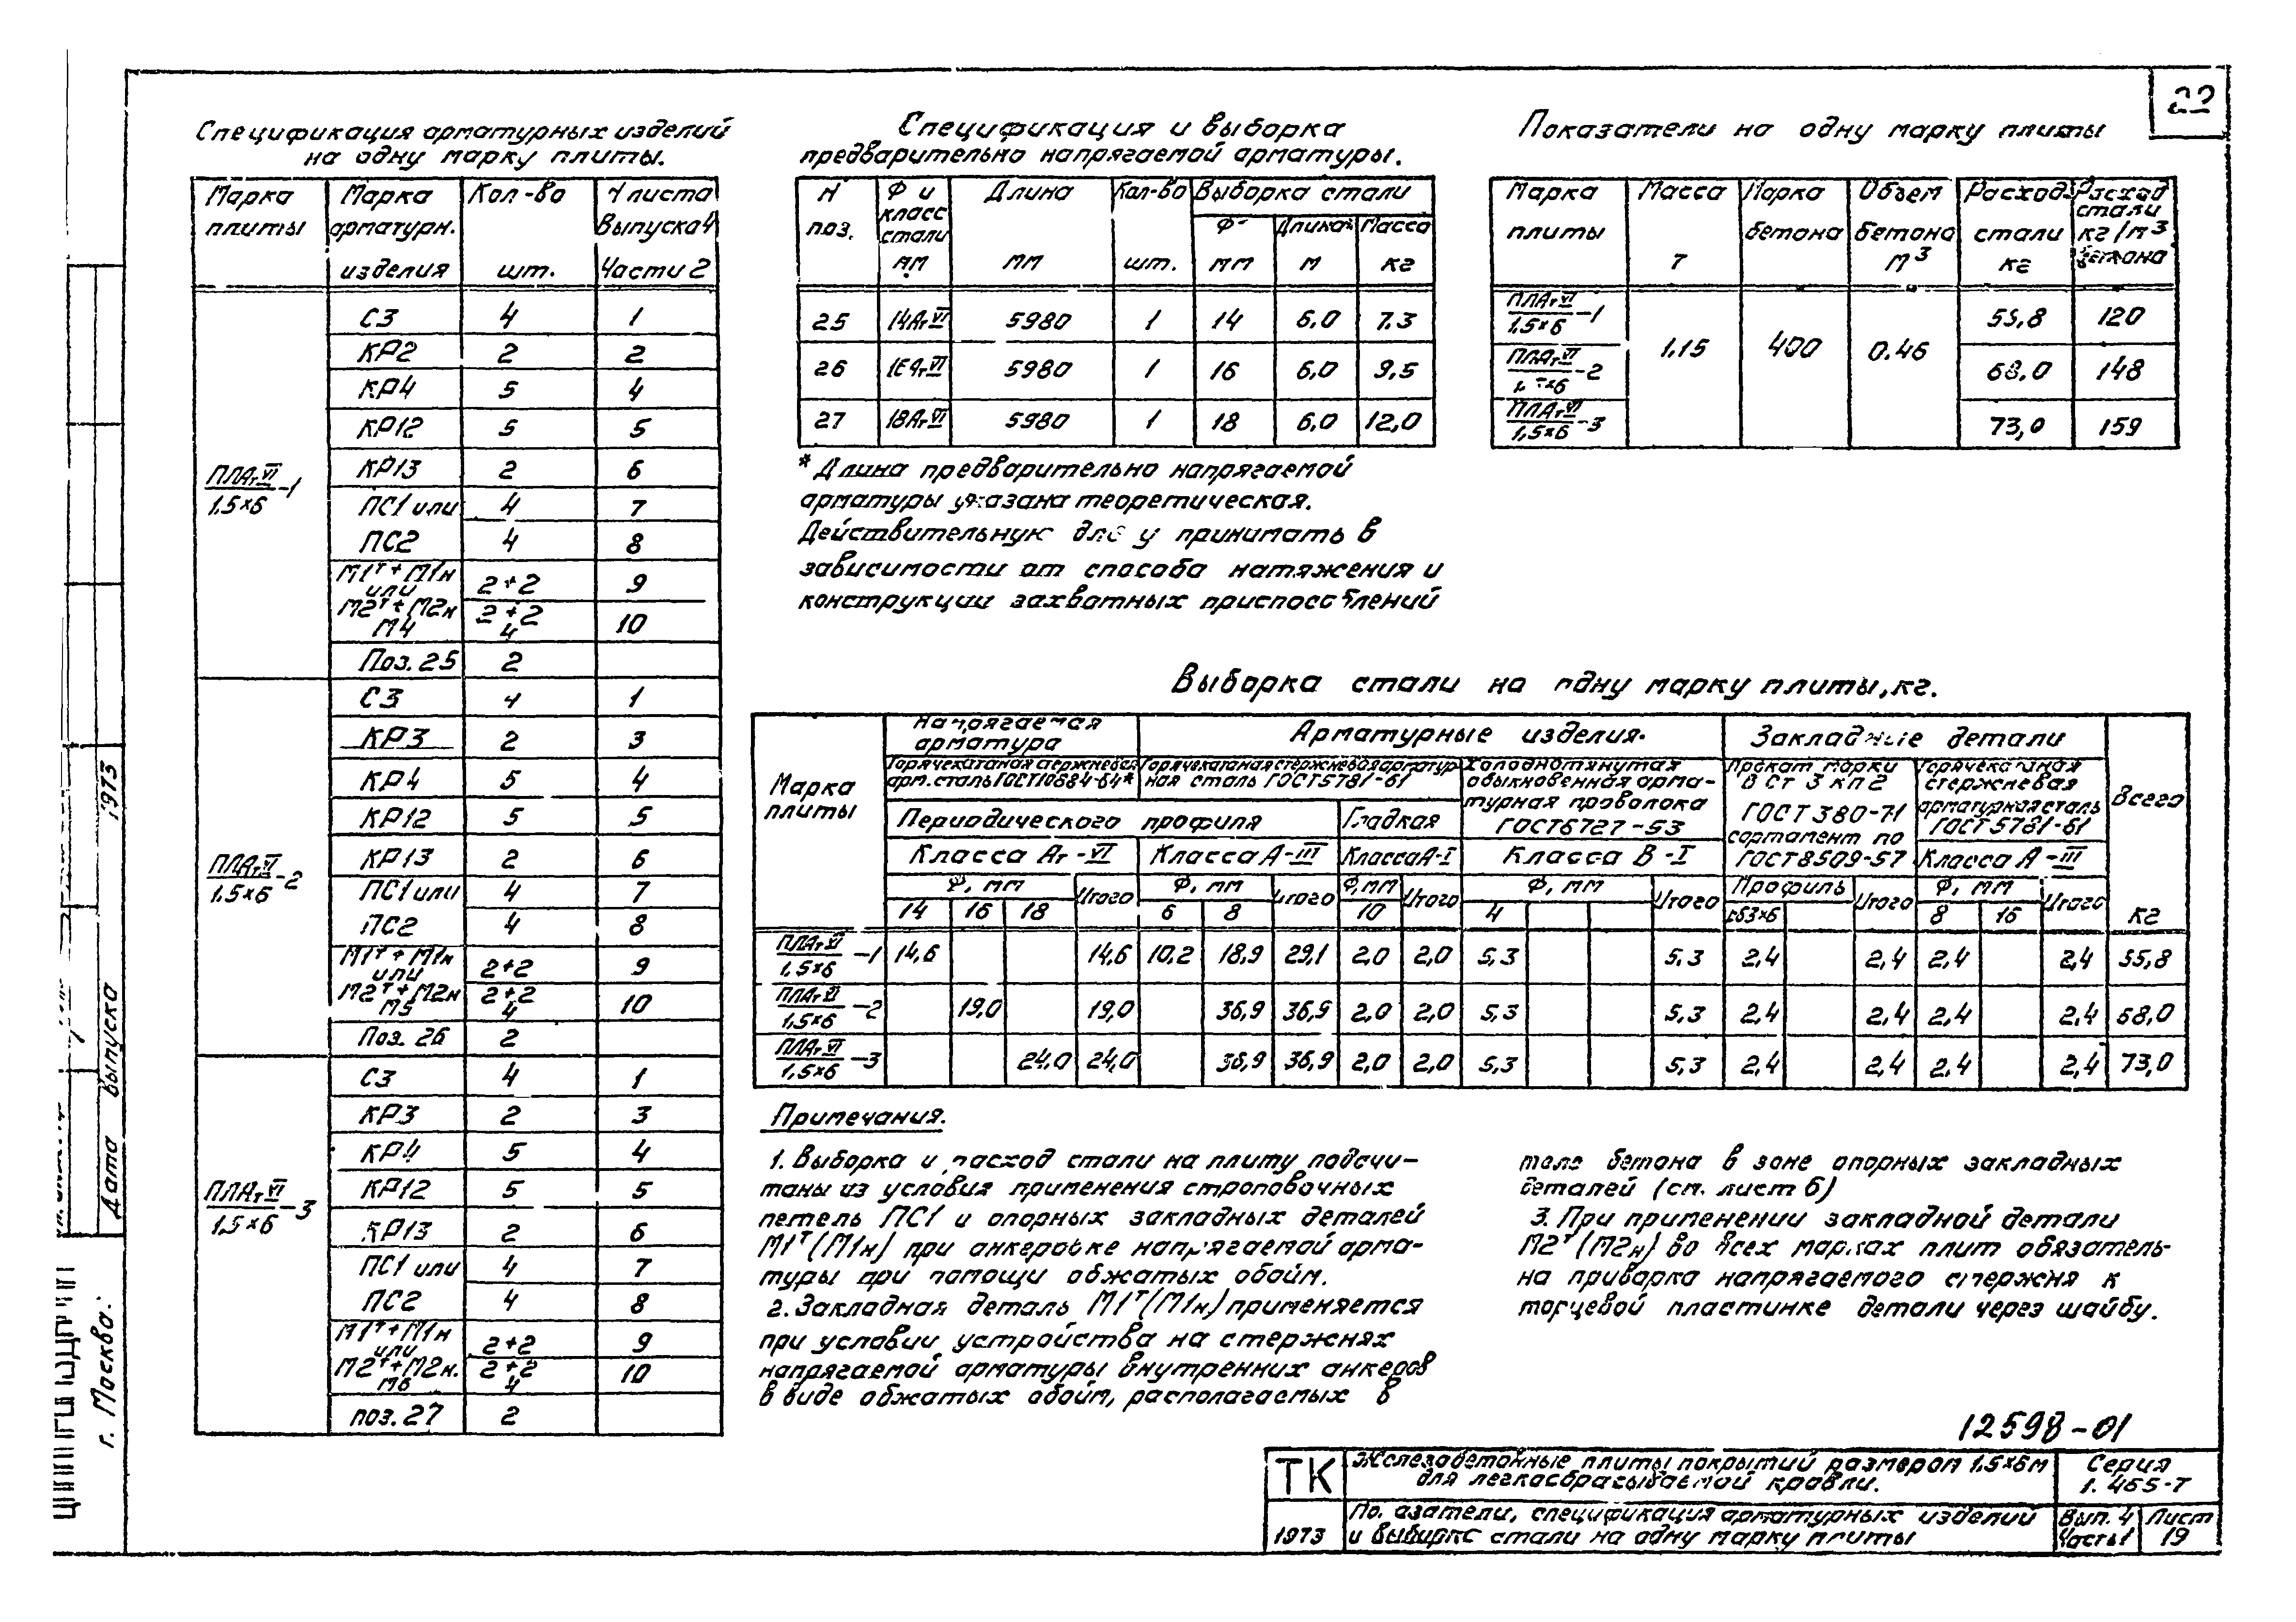 22
Спецификация арматурных изделий
на одну марку плиты.
Марка плиты | Марка арматурн. изделия | Кол-во шт. | N листа Выпуска 4 Части 2
ПЛАтVI/1,5×6-1
С3 | 4 | 1
КР2 | 2 | 2
КР4 | 5 | 4
КР12 | 5 | 5
КР13 | 2 | 6
ПС1 или | 4 | 7
ПС2 | 4 | 8
М1т+М1н или | 2+2 | 9
М2т+М2н | 2+2 | 10
М4 | 4
Поз. 25 | 2
ПЛАтVI/1,5×6-2
С3 | 4 | 1
КР3 | 2 | 3
КР4 | 5 | 4
КР12 | 5 | 5
КР13 | 2 | 6
ПС1 или | 4 | 7
ПС2 | 4 | 8
М1т+М1н или | 2+2 | 9
М2т+М2н | 2+2 | 10
М5 | 4
Поз. 26 | 2
ПЛАтVI/1,5×6-3
С3 | 4 | 1
КР3 | 2 | 3
КР4 | 5 | 4
КР12 | 5 | 5
КР13 | 2 | 6
ПС1 или | 4 | 7
ПС2 | 4 | 8
М1т+М1н или | 2+2 | 9
М2т+М2н. | 2+2 | 10
М6 | 4
поз. 27 | 2
Спецификация и выборка
предварительно напрягаемой арматуры.
N поз. | Ф и класс стали мм | Длина мм | Кол-во шт. | Выборка стали
Ф мм | Длина* м | Масса кг
25 | 14АтVI | 5980 | 1 | 14 | 6.0 | 7.3
26 | 16АтVI | 5980 | 1 | 16 | 6,0 | 9,5
27 | 18АтVI | 5980 | 1 | 18 | 6,0 | 12,0
* Длина предварительно напрягаемой
арматуры указана теоретическая.
Действительную у принимать в
зависимости от способа натяжения и
конструкции захватных приспособлений
Показатели на одну марку плиты
Марка плиты | Масса т | Марка бетона | Объем бетона м³ | Расход стали кг | Расход стали кг/м³ бетона
ПЛАтVI/1,5×6-1 | 1,15 | 400 | 0.46 | 55,8 | 120
ПЛАтVI/1,5×6-2 | 68,0 | 148
ПЛАтVI/1,5×6-3 | 73,0 | 159
Выборка стали на одну марку плиты, кг.
Марка плиты | Напрягаемая арматура | Арматурные изделия. | Закладные детали | Всего кг
Горячекатаная стержневая арм. сталь ГОСТ 10884-64* | Горячекатаная стержневая арматурная сталь ГОСТ 5781-61 | Холоднотянутая обыкновенная арматурная проволока ГОСТ 6727-53 | Прокат марки В Ст 3 кп 2 ГОСТ 380-71 сортамент по ГОСТ 8509-57 | Горячекатаная стержневая арматурная сталь ГОСТ 5781-61
Периодического профиля | Гладкая
Класса Ат-VI | Класса А-III | Класса А-I | Класса В-I | Класса А-III
Ф, мм | Итого | Ф, мм | Итого | Ф, мм | Итого | Ф, мм | Итого | Профиль | Итого | Ф, мм | Итого
14 | 16 | 18 | 6 | 8 | 10 | 4 | L63×6 | 8 | 16
ПЛАтVI/1,5×6-1 | 14,6 | 14,6 | 10.2 | 18,9 | 29,1 | 2,0 | 2,0 | 5,3 | 5,3 | 2,4 | 2,4 | 2,4 | 2,4 | 55,8
ПЛАтVI/1,5×6-2 | 19,0 | 19,0 | 36,9 | 36,9 | 2,0 | 2,0 | 5,3 | 5,3 | 2,4 | 2,4 | 2,4 | 2,4 | 68,0
ПЛАтVI/1,5×6-3 | 24,0 | 24,0 | 36,9 | 36,9 | 2,0 | 2,0 | 5,3 | 5,3 | 2,4 | 2,4 | 2,4 | 2,4 | 73,0
Примечания.
1. Выборка и расход стали на плиту подсчи-
таны из условия применения строповочных
петель ПС1 и опорных закладных деталей
М1т(М1н) при анкеровке напрягаемой арма-
туры при помощи обжатых обойм.
2. Закладная деталь М1т(М1н) применяется
при условии устройства на стержнях
напрягаемой арматуры внутренних анкеров
в виде обжатых обойм, располагаемых в
теле бетона в зоне опорных закладных
деталей (см. лист 6)
3. При применении закладной детали
М2т(М2н) во всех марках плит обязатель-
на приварка напрягаемого стержня к
торцевой пластинке детали через шайбу.
12598-01
ТК
1973
Железобетонные плиты покрытий размером 1.5×6м
для легкосбрасываемой кровли.
Показатели, спецификация арматурных изделий
и выборка стали на одну марку плиты
Серия
1.465-7
Вып. 4
Часть 1
Лист
19
Дата выпуска 1973
г. Москва.